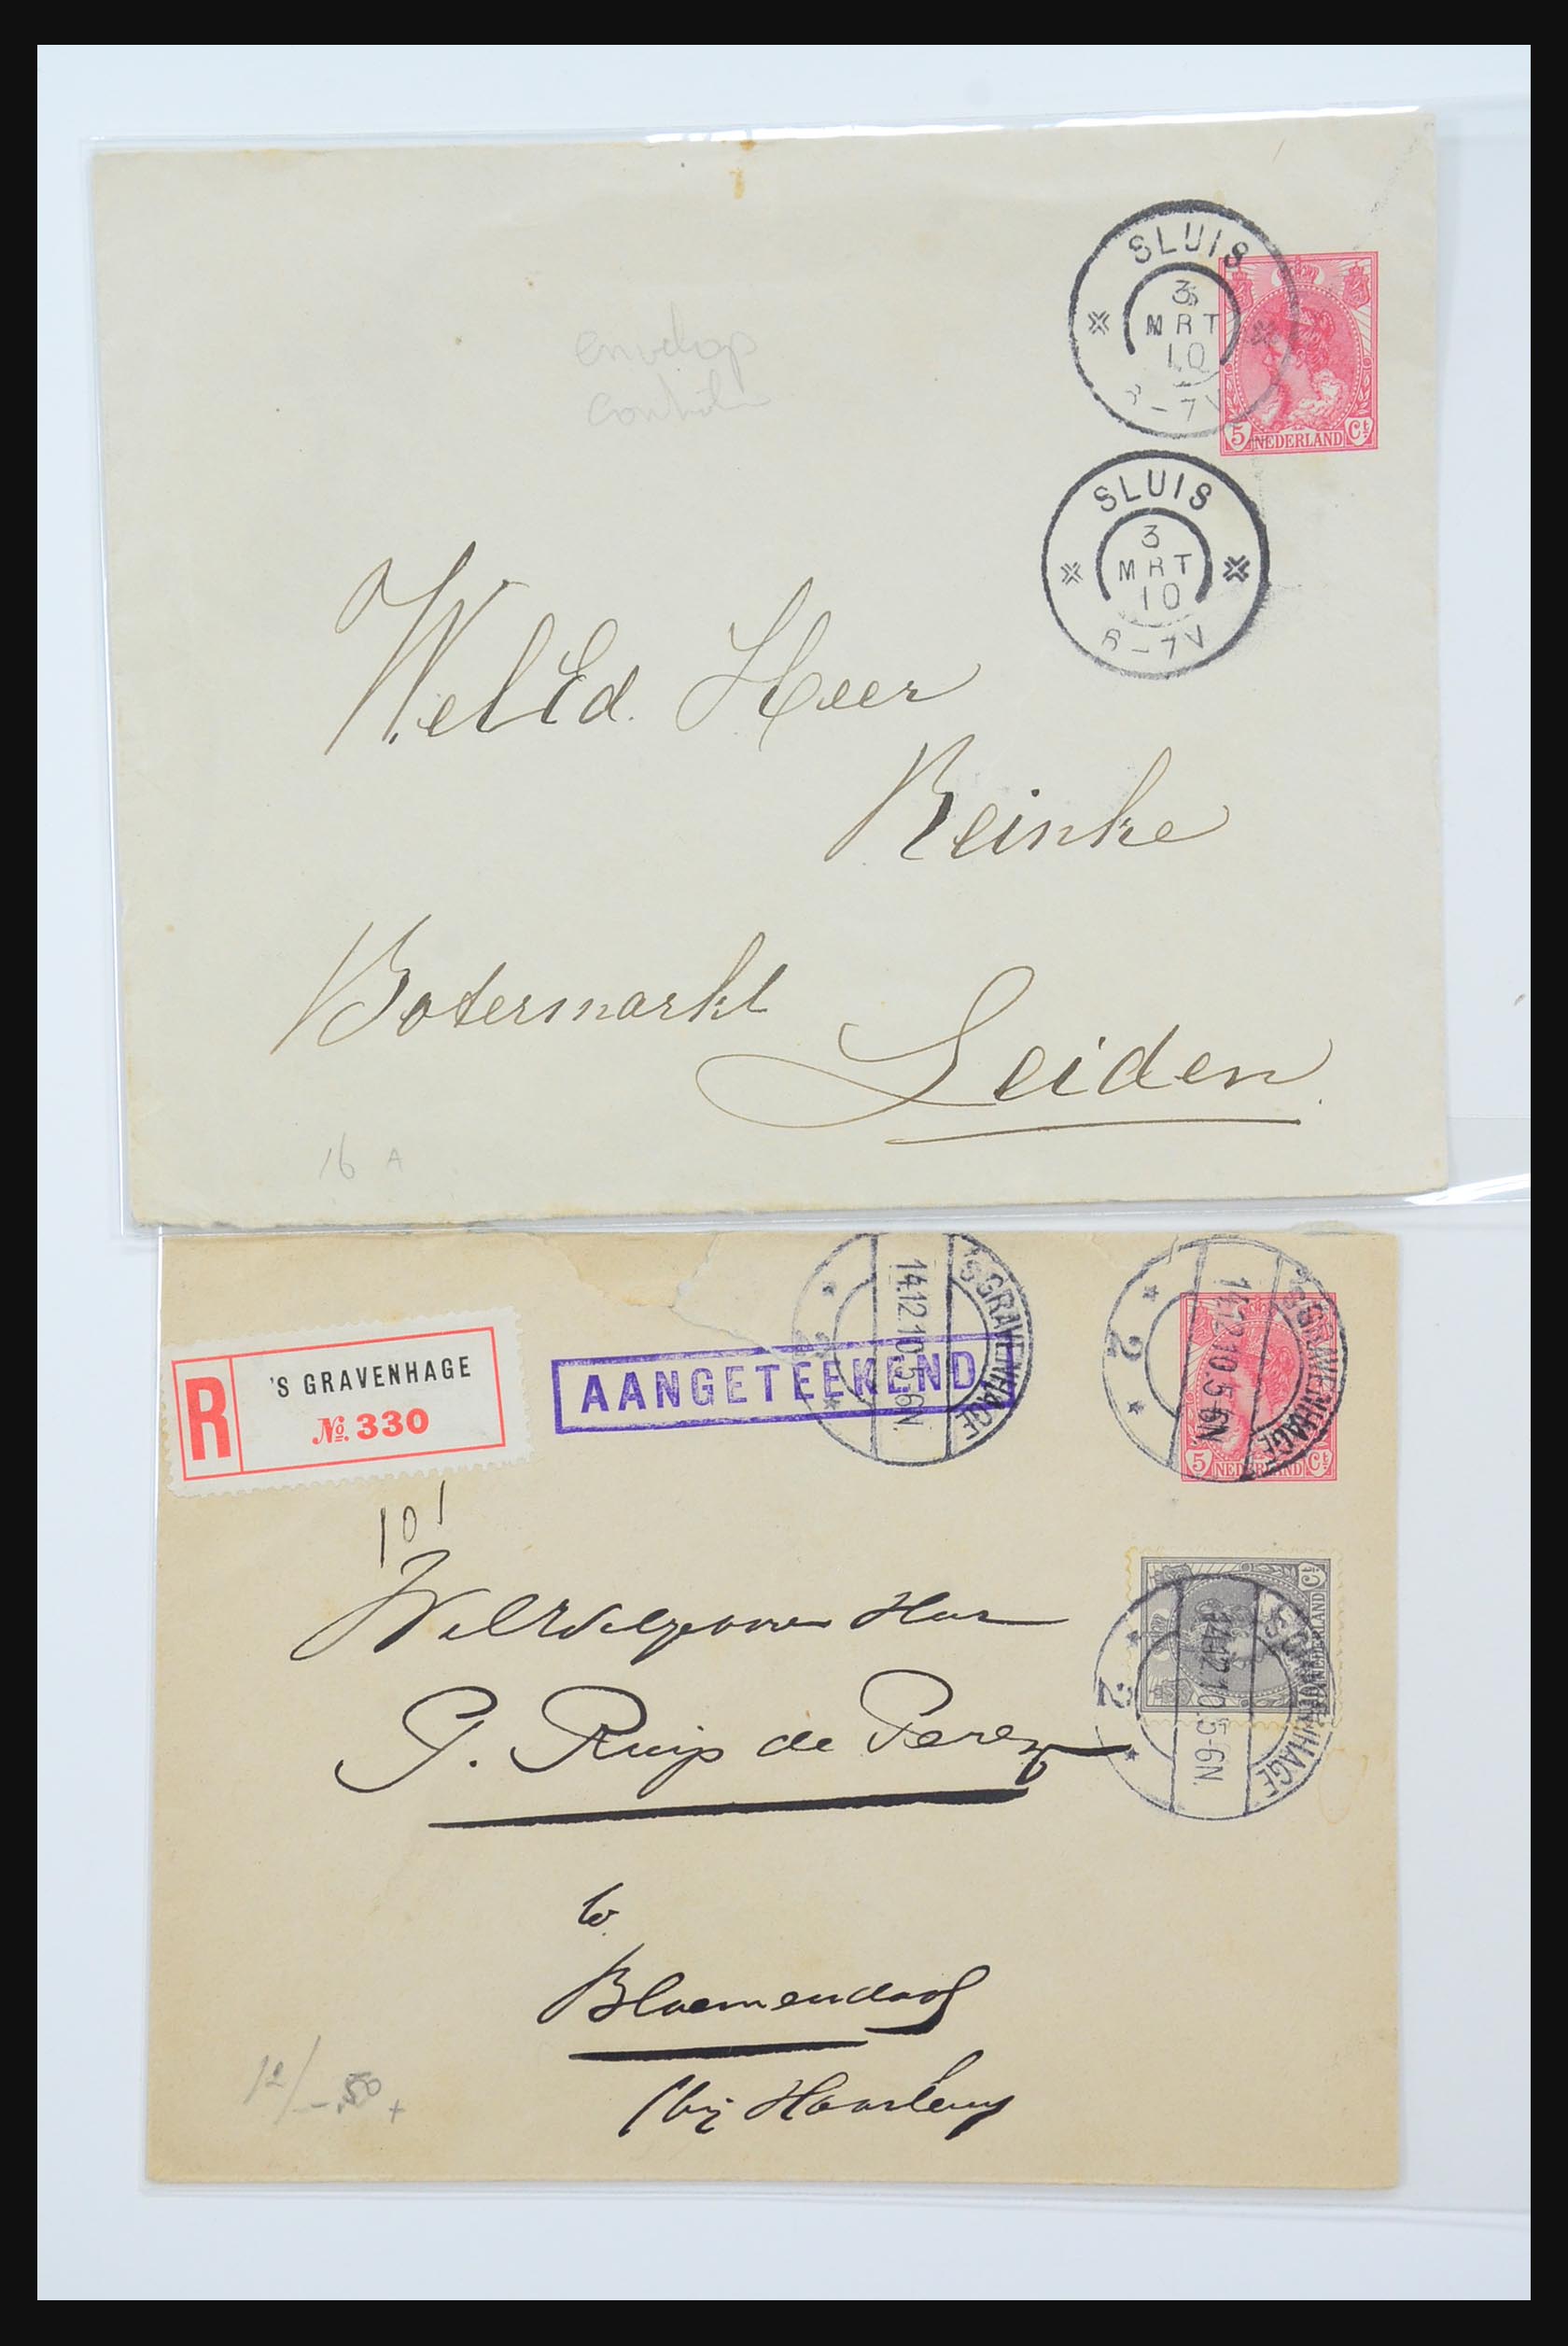 SLUIS
3
MRT
10
6-7V
5 NEDERLAND Ct
envelop
SLUIS
3
MRT
10
6-7V
WelEd. Heer
Reinke
Botermarkt
Leiden.
16 A
R
'S GRAVENHAGE
No. 330
AANGETEEKEND
'S GRAVENHAGE
14.12.10.5-6N.
2
'S GRAVENHAGE
14.12.10.5-6N.
2
5 NEDERLAND Ct
101
Heer
de Perez
Ct
NEDERLAND
'S GRAVENHAGE
14.12.10.5-6N.
2
te
Bloemendaal
(bij Haarlem)
12/-.50 +